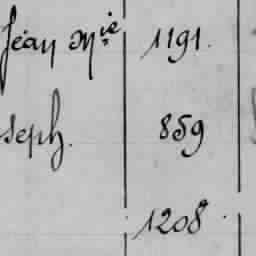 Jean Mie 1191.
seph. 859
1208